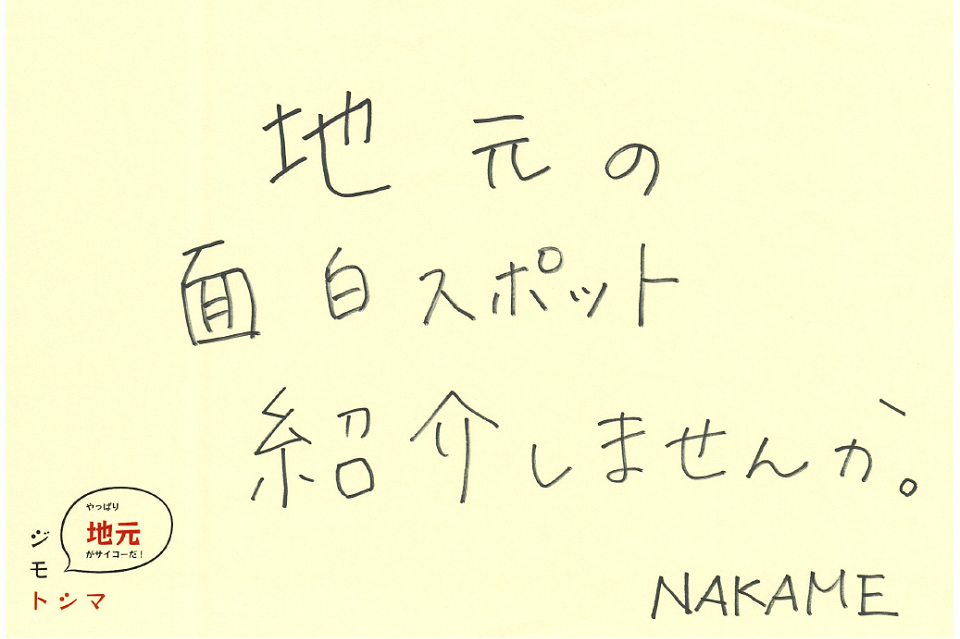 地元の
面白スポット
紹介しませんか。
NAKAME
やっぱり
地元
がサイコーだ！
ジモ
トシマ